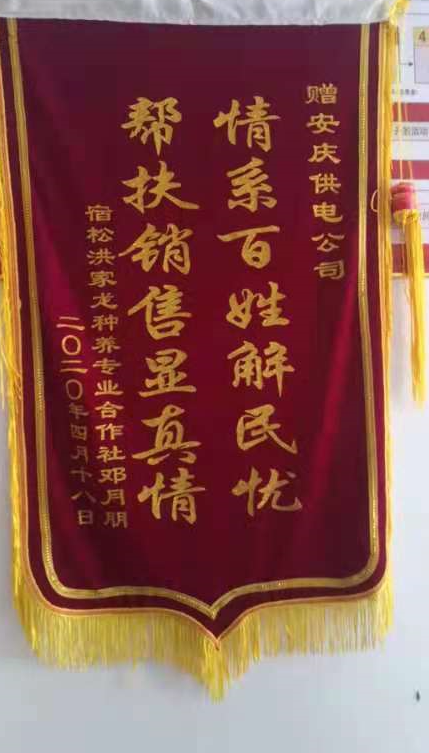 赠安庆供电公司
情系百姓解民忧
帮扶销售显真情
宿松洪家龙种养专业合作社邓月朋
二〇二〇年四月十八日
4